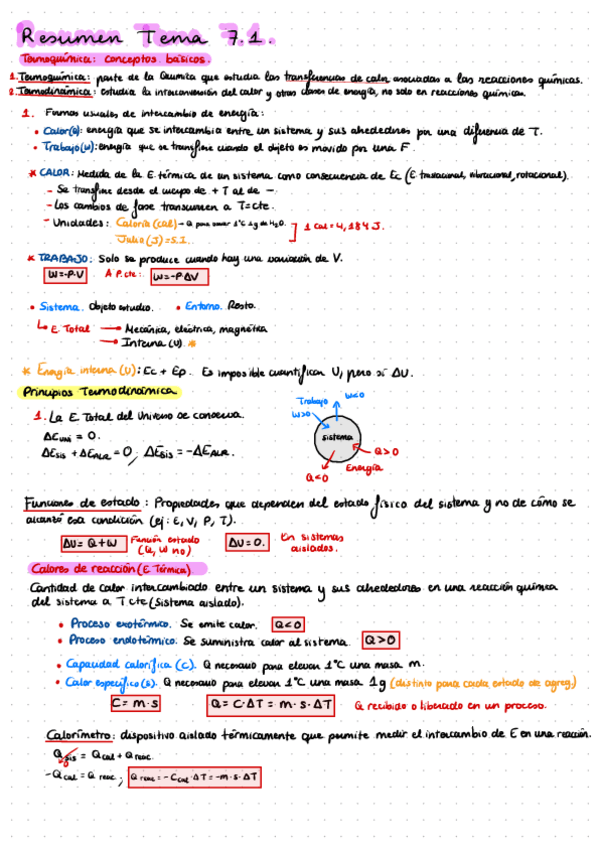 Resumen Tema 7.1.
Termoquímica: conceptos básicos.
1. Termoquímica: parte de la Química que estudia las transferencias de calor asociadas a las reacciones químicas.
2. Termodinámica: estudia la interconversión del calor y otras clases de energía, no solo en reacciones químicas.
1. Formas usuales de intercambio de energía:
• Calor(Q): energía que se intercambia entre un sistema y sus alrededores por una diferencia de T.
• Trabajo(W): energía que se transfiere cuando el objeto es movido por una F.
* CALOR: Medida de la E. térmica de un sistema como consecuencia de Ec (E. traslacional, vibracional, rotacional).
- Se transfiere desde el cuerpo de + T al de -.
- Los cambios de fase transcurren a T=cte.
- Unidades: Caloría (cal) → Q para elevar 1°C 1g de H₂O.
Julio (J) = S.I.
1 cal = 4,184 J.
* TRABAJO: Solo se produce cuando hay una variación de V.
W=-P·V A P.cte: W=-P·ΔV
• Sistema. Objeto estudio. • Entorno. Resto.
↳ E. Total → Mecánica, eléctrica, magnética
→ Interna (U). *
* Energía interna (U): Ec + Ep. Es imposible cuantificar U, pero sí ΔU.
Principios Termodinámica
1. La E. Total del Universo se conserva.
ΔEuni = 0.
ΔEsis + ΔEALR. = 0; ΔEsis = -ΔEALR.
Trabajo W<0
W>0
sistema
Q>0
Energía
Q<0
Funciones de estado: Propiedades que dependen del estado físico del sistema y no de cómo se
alcanzó esa condición (ej: E, V, P, T).
ΔU= Q+W Función estado (Q, W no) ΔU=0. En sistemas aislados.
Calores de reacción (E. Térmica)
Cantidad de calor intercambiado entre un sistema y sus alrededores en una reacción química
del sistema a T cte (Sistema aislado).
• Proceso exotérmico. Se emite calor. Q<0
• Proceso endotérmico. Se suministra calor al sistema. Q>0
• Capacidad calorífica (C). Q necesario para elevar 1°C una masa m.
• Calor específico (s). Q necesario para elevar 1°C una masa 1g (distinto para cada estado de agreg.)
C= m·s Q= C·ΔT = m·s·ΔT Q recibido o liberado en un proceso.
Calorímetro: dispositivo aislado térmicamente que permite medir el intercambio de E en una reacción.
Qsis = Qcal + Qreac.
-Qcal = Q reac.; Q reac = -Ccal·ΔT = -m·s·ΔT